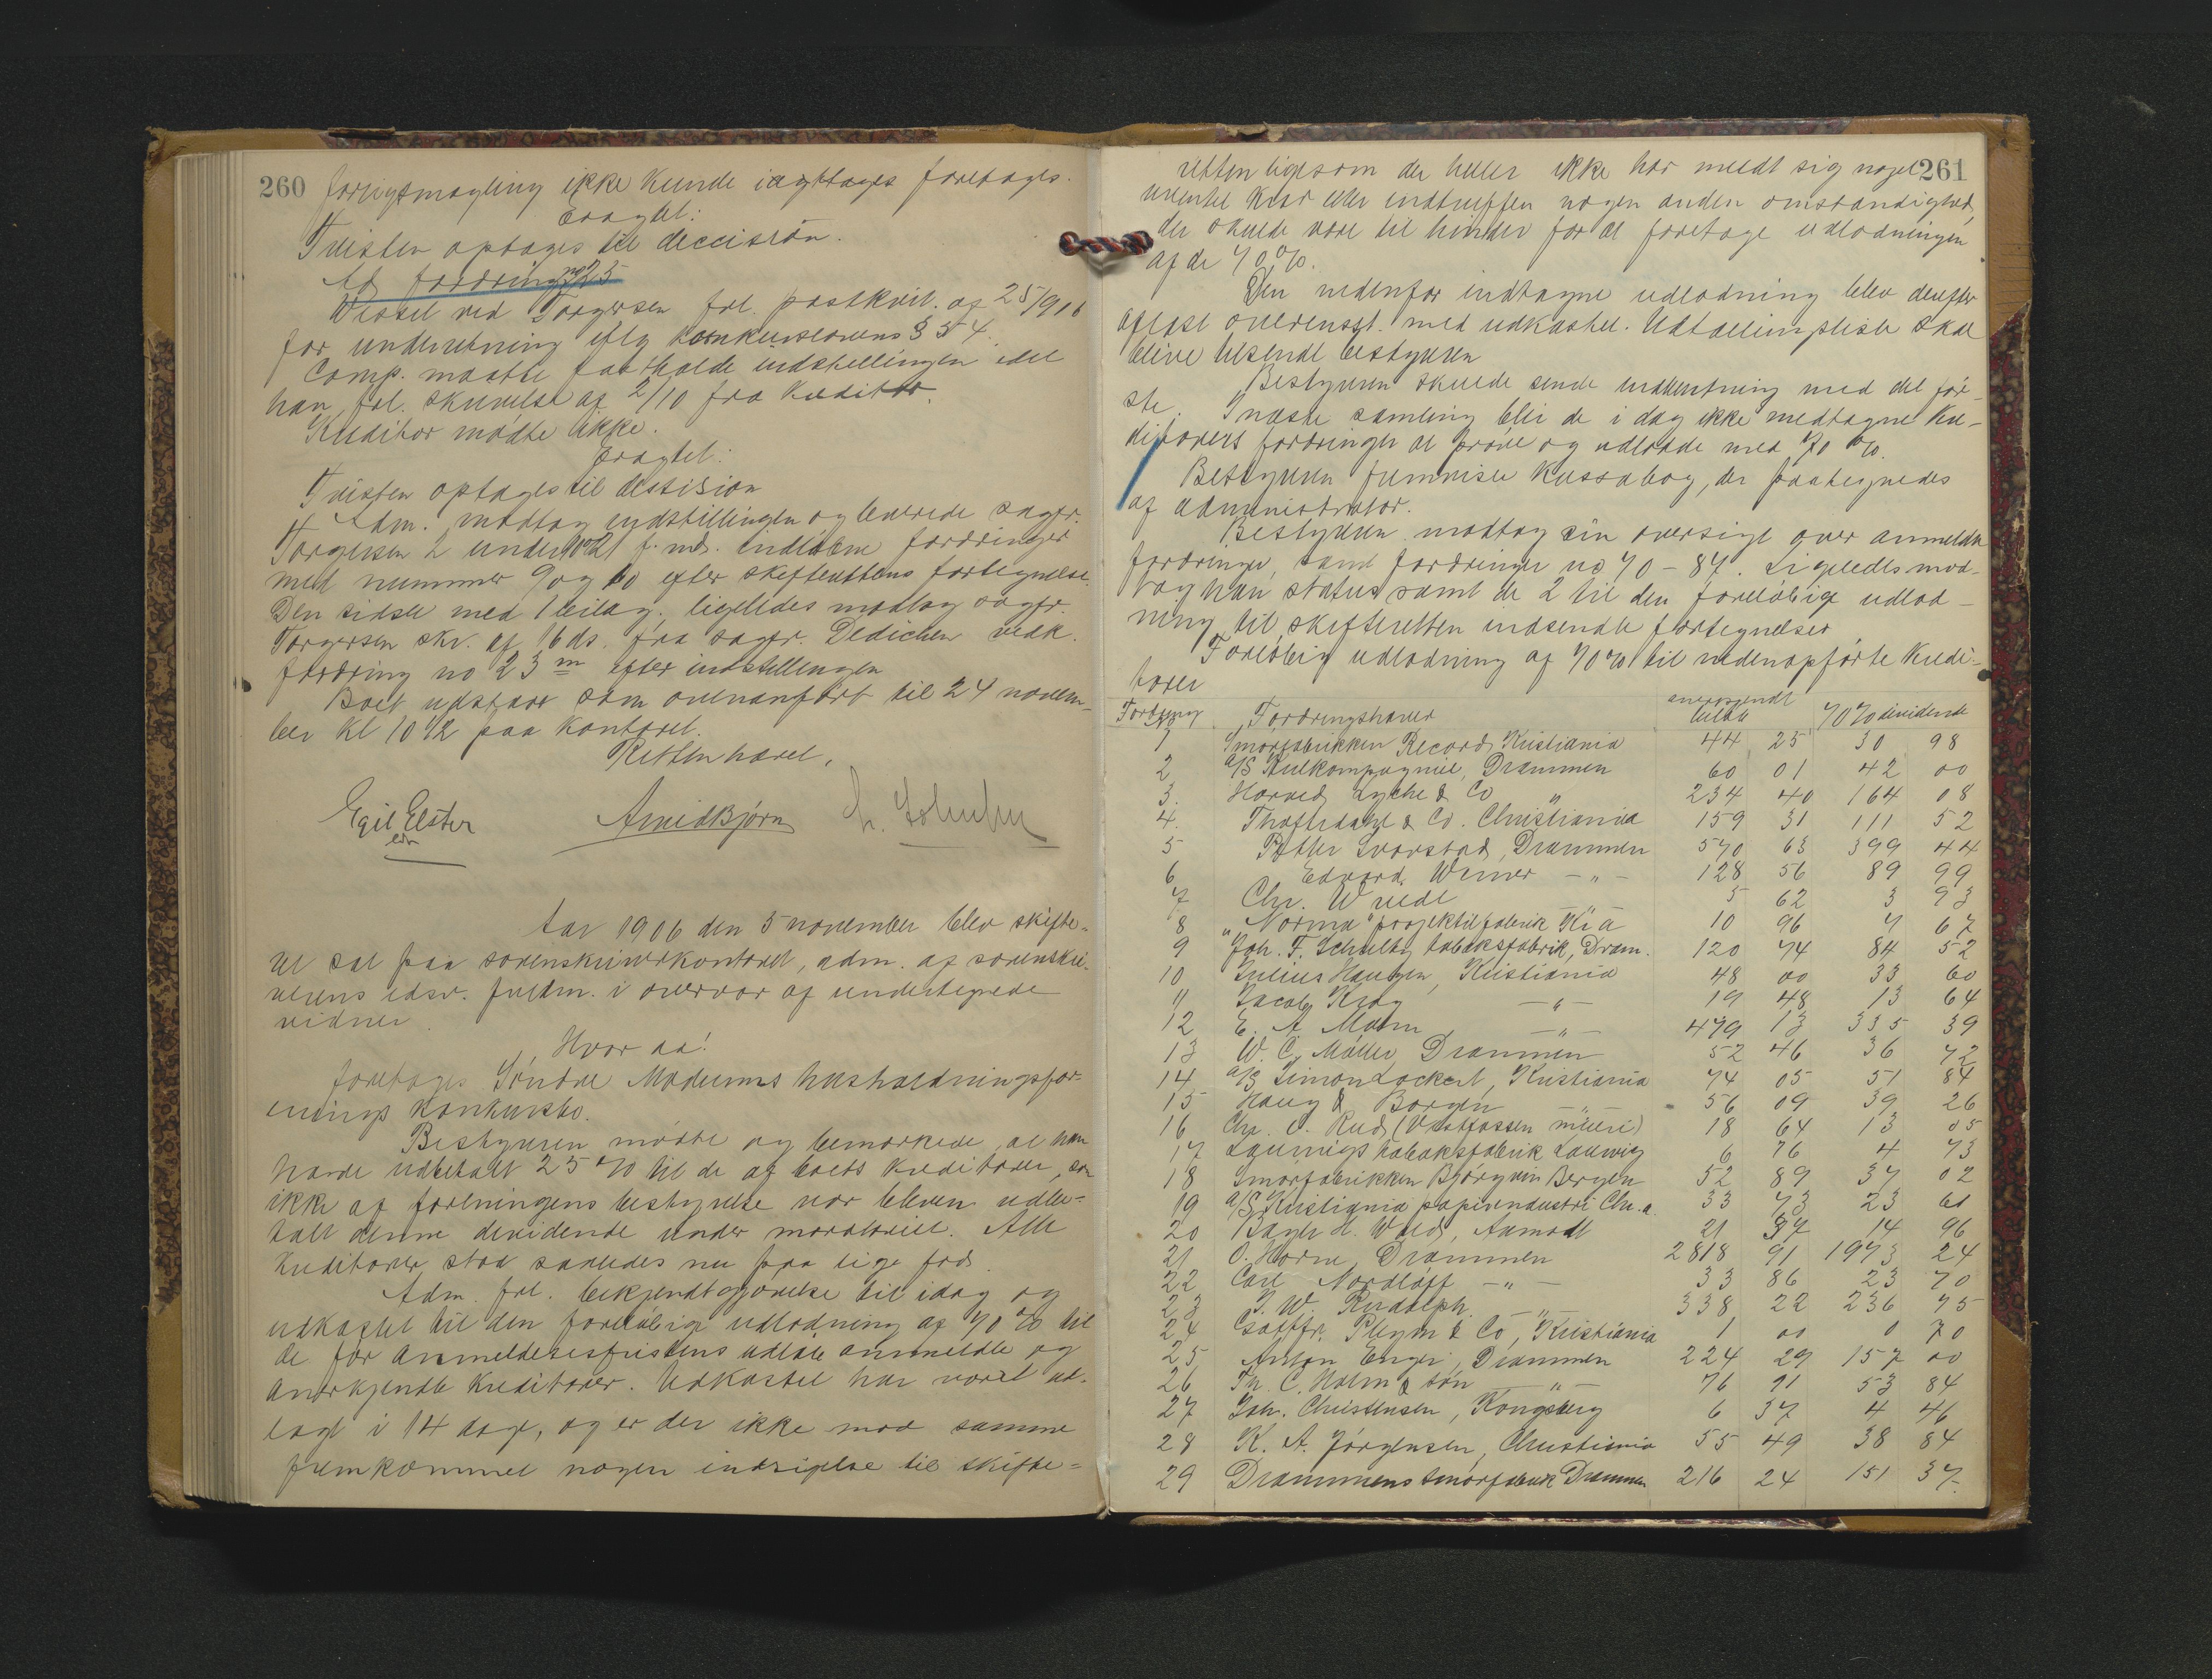 260 forligsmægling ikke kunde iagttages foretages.
Eragtet:
Tvisten optages til deccision.
Ad fordring no 25
Wessel ved Torgersen frl. postkvit. af 25/9 16
for underretning iflg konkurslovens § 54.
Comp. maatte fastholde indstillingen idet
han frl. skrivelse af 2/10 fra kreditor.
Kreditor mødte ikke.
Eragtet:
Tvisten optages til decision
Adm. modtog indstillingen og leverede sagfr.
Torgersen 2 under f. md. indkomne fordringer
med nummer 9 og 10 efter skifterettens fortegnelse.
Den sidste med 1 bilag, ligeledes modtog sagfr.
Torgersen skr. af 16 ds. fra sagfr. Dedichen vedk.
fordring no 23 efter indstillingen
Boet udsættes som ovenanført til 24 novem-
ber kl 10 1/2 paa kontoret.
Retten hævet.
Egil Elster
edsv
Arnid Bjørn
Aar 1906 den 5 november blev skifte-
ret sat paa sorenskriverkontoret, adm. af sorenskri-
verens edsv. fuldm. i overvær af undertegnede
vidner.
Hvor da!
foretoges Søndre Modums husholdningsfor-
enings konkursbo.
Bestyreren mødte og bemærkede, at han
havde udbetalt 25 % til de af boets kreditorer, som
ikke af foreningens bestyrelse var bleven udbe-
talt denne devidende under moratoriet. Alle
kreditorer stod saaledes nu paa lige fod.
Adm. frl. bekjendtgjørelse til idag og
udkastet til den foreløbige udlodning af 70 % til
de før anmeldelsesfristens udløb anmeldte og
anerkjendte kreditorer. Udkastet har været ud-
lagt i 14 dage, og er der ikke mod samme
fremkommet nogen indsigelse til skifte-
261
retten ligesom der heller ikke har meldt sig noget
uventet krav eller indtruffen nogen anden omstændighed,
der skulde være til hinder for at foretage udlodningen
af de 70 %.
Den nedenfor indtagne udlodning blev derefter
oplæst overensst. med udkastet. Udtællingsliste skal
blive tilsendt bestyreren
Bestyreren skulde sende indberetning med det før-
ste. I næste samling blir de i dag ikke medtagne kre-
ditorers fordringer at prøve og udlodde med 70 %.
Bestyreren fremviste kassabog, der paategnedes
af administrator.
Bestyreren modtog sin oversigt over anmeldte
fordringer, samt fordringer no 70 - 87. Ligeledes mod-
tog han status samt de 2 til den foreløbige udlod-
ning til skifteretten indsendte fortegnelser
Foreløbig udlodning af 70 % til nedenopførte kredi-
torer
Fordring No Fordringshaver anerkjendt beløb 70 % devidende
1 Smørfabrikken Record, Kristiania 44 25 30 98
2 A/S Kulkompagniet, Drammen 60 01 42 00
3. Harved Lyche & Co " 234 40 164 08
4. Thoftedahl & Co. Christiania 159 31 111 52
5 Petter Svarstad, Drammen 570 63 399 44
6 Edvard Werner - " - 128 56 89 99
7 Chr. Wriedt - " - 5 62 3 93
8 "Norma" projektilfabrik Kr.a 10 96 7 67
9 Joh. F. Schultz tobaksfabrik, Dram. 120 74 84 52
10 Julius Haugen, Kristiania 48 00 33 60
11 Jacob Krag - " - 19 48 13 64
12 E. A. Malm - " - 479 13 335 39
13 W. C. Møller, Drammen 52 46 36 72
14 A/S Simon Lockert, Kristiania 74 05 51 84
15 Haug & Borgen - " - 56 09 39 26
16 Chr. O. Rud (Vestfossen mølleri) 18 64 13 05
17 Laurvigs tobaksfabrik Laurvig 6 76 4 73
18 Smørfabrikken Bjørgvin Bergen 52 89 37 02
19 A/S Kristiania papirindustri Chr.a. 33 73 23 61
20 H. Wold, Aamodt 21 37 14 96
21 O. Horne Drammen 2818 91 1973 24
22 Carl Nordløff - " - 33 86 23 70
23 I. W. Rudolph - " - 338 22 236 75
24 Gottfr. Pleym & Co, Kristiania 1 00 0 70
25 Anton Enger, Drammen 224 29 157 00
26 Th. C. Holm & søn - " - 76 91 53 84
27 Joh. Christensen, Kongsberg 6 37 4 46
28 K. A. Jørgensen, Christiania 55 49 38 84
29 Drammens smørfabrik Drammen 216 24 151 37